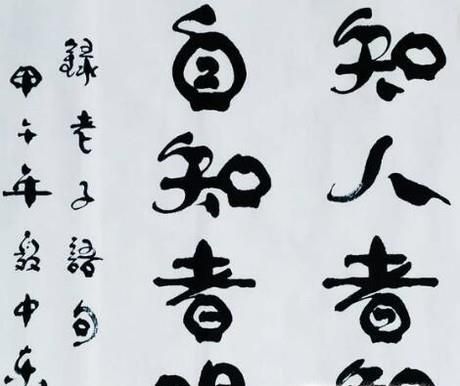 知人者智
自知者明
錄老子語句
甲午年中